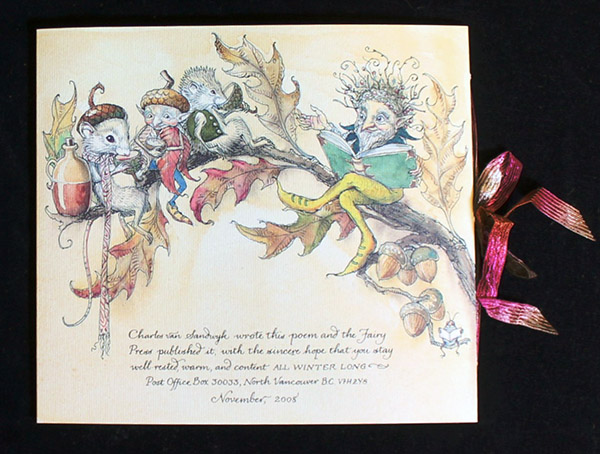 Charles van Sandwyk wrote this poem and the Fairy
Press published it, with the sincere hope that you stay
well-rested, warm, and content ALL WINTER LONG
Post Office Box 30033, North Vancouver BC V7H2Y8
November, 2008